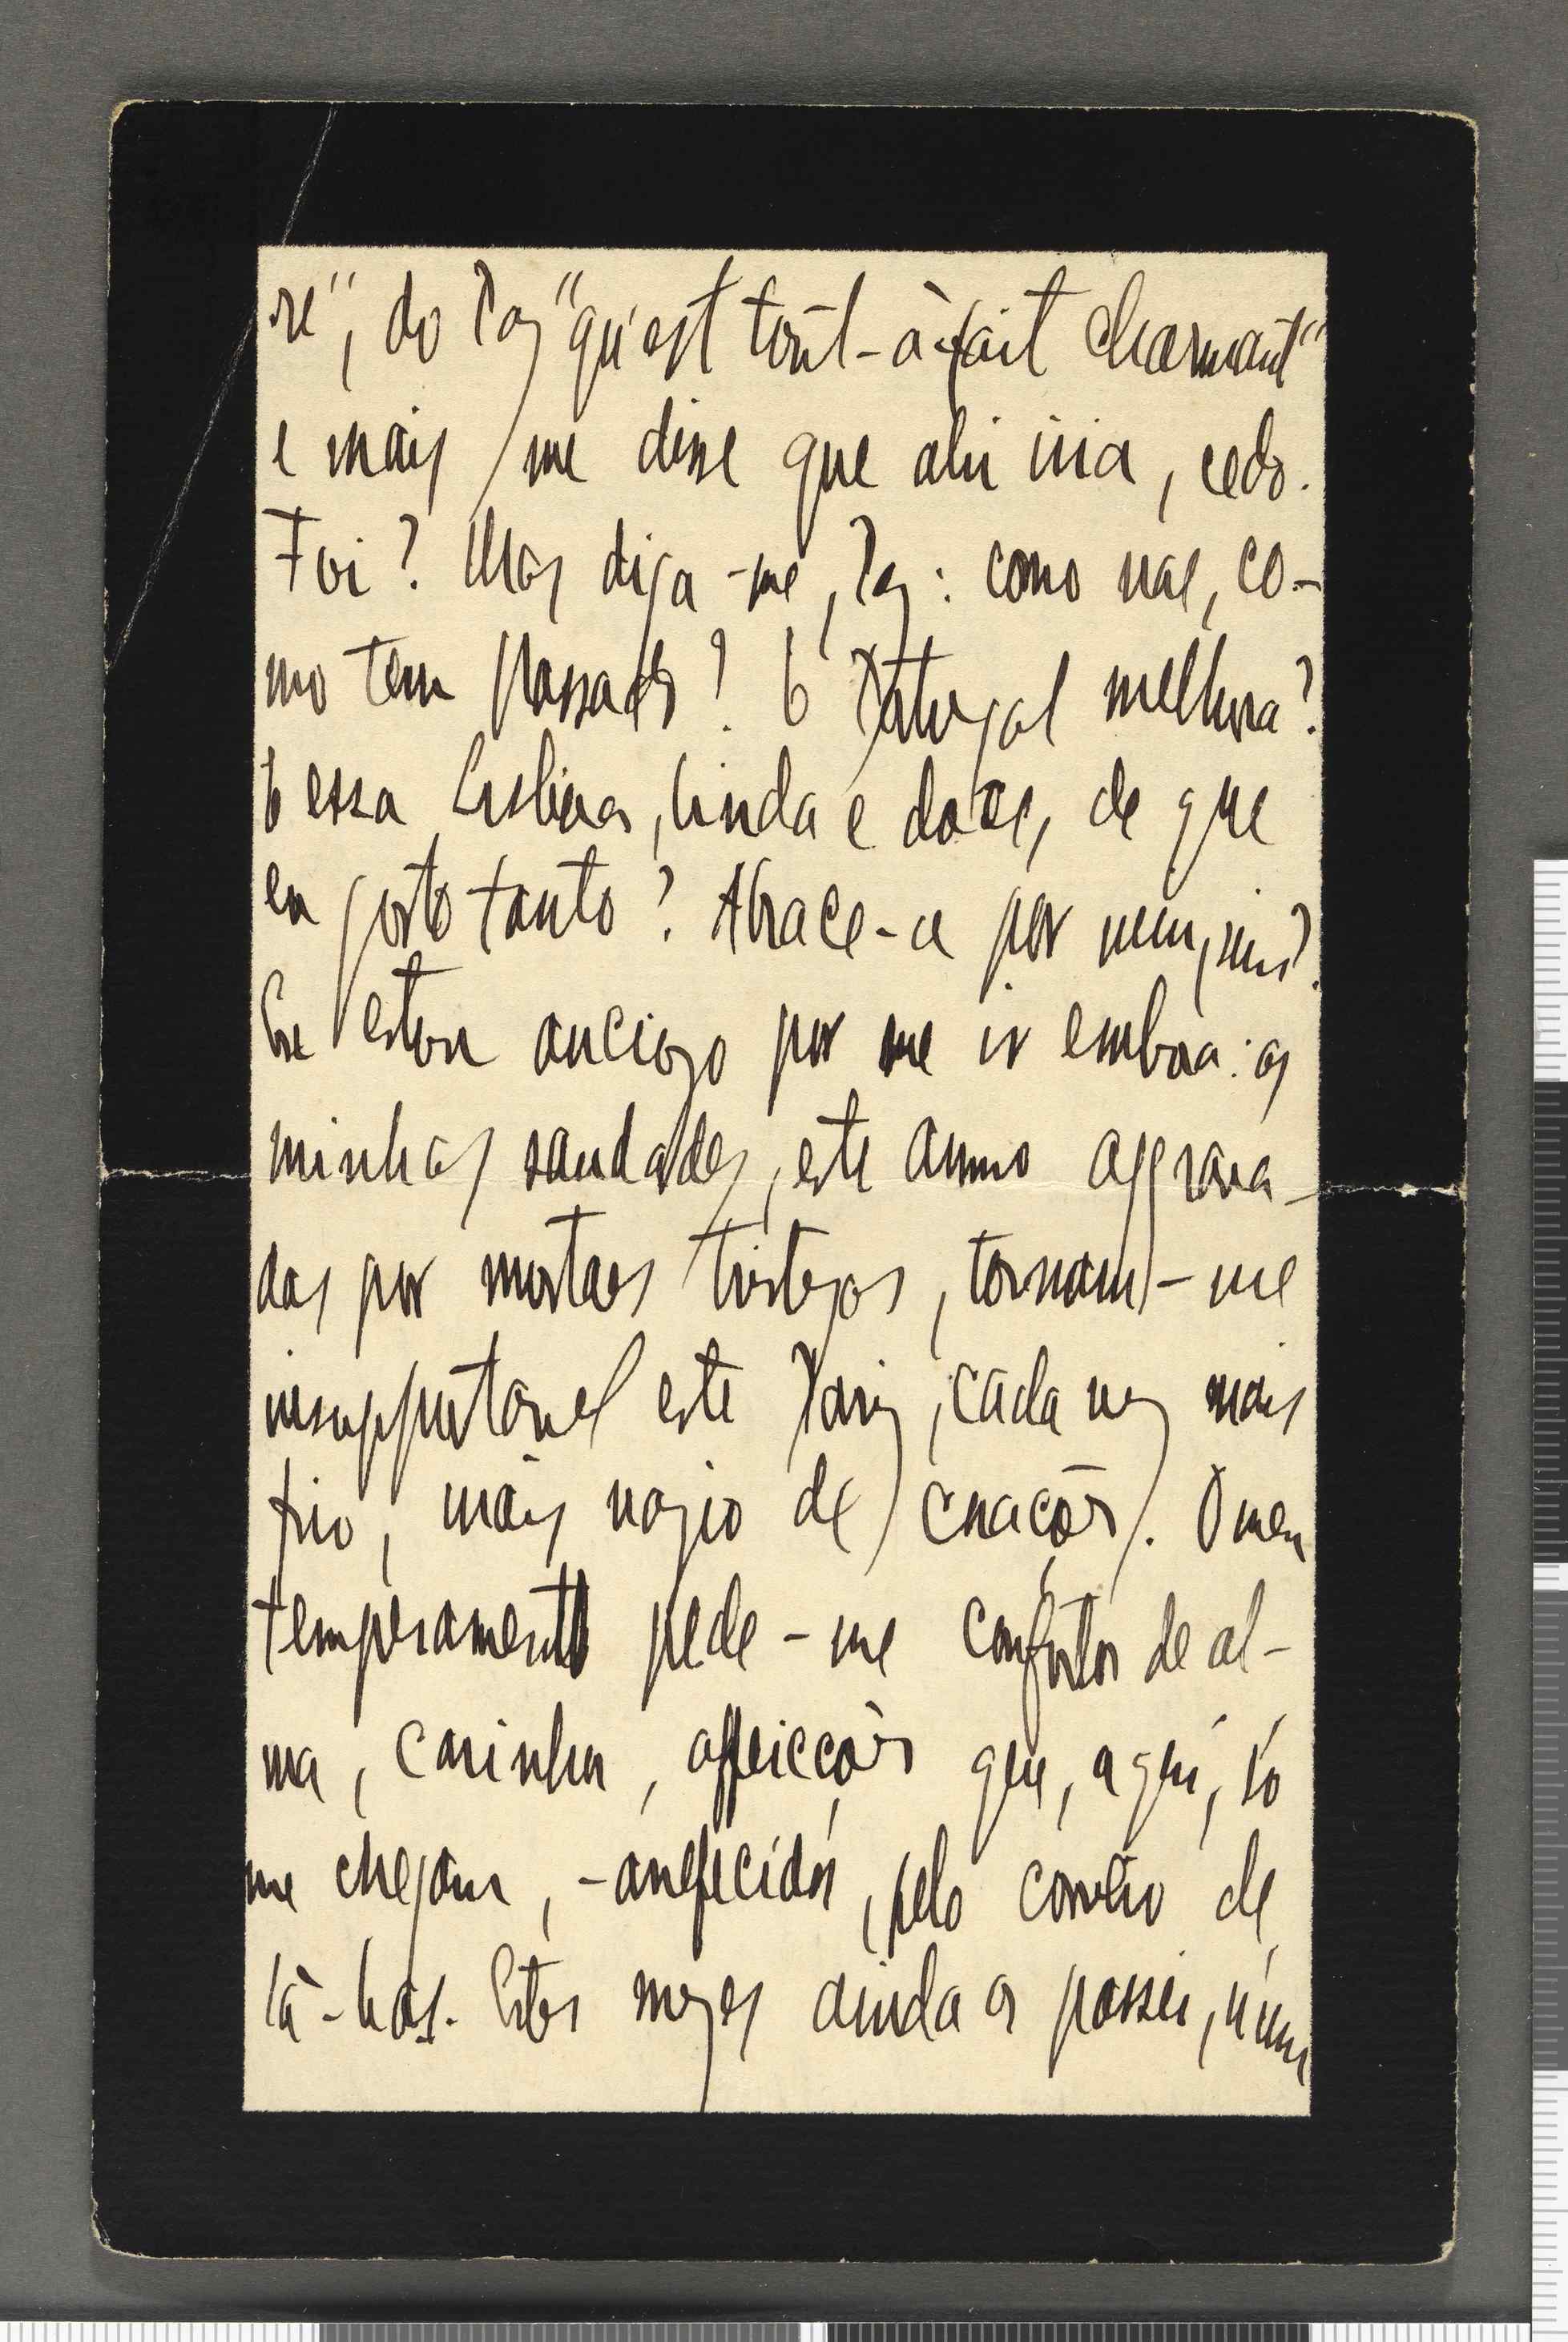 re", do Paz "qu'est tout-à-fait charmant"
e mais me disse que ahi iria, cedo.
Foi? Mas diga-me, Paz: como vae, co-
mo tem passado? E Portugal melhora?
E essa Lisboa, linda e doce, de que
eu gosto tanto? Abrace-a por mim, sim?
Eu estou ancioso por me ir embora: as
minhas saudades, este anno aggrava-
das por mortaes tristezas, tornam-me
insupportavel este Pariz, cada vez mais
frio, mais vazio de corações. O meu
temperamento pede-me confortos de al-
ma, carinhos, affeicções que, aqui, só
me chegam, -arrefecidos, pelo correio de
lá-bas. Estes mezes ainda os passei, n'um